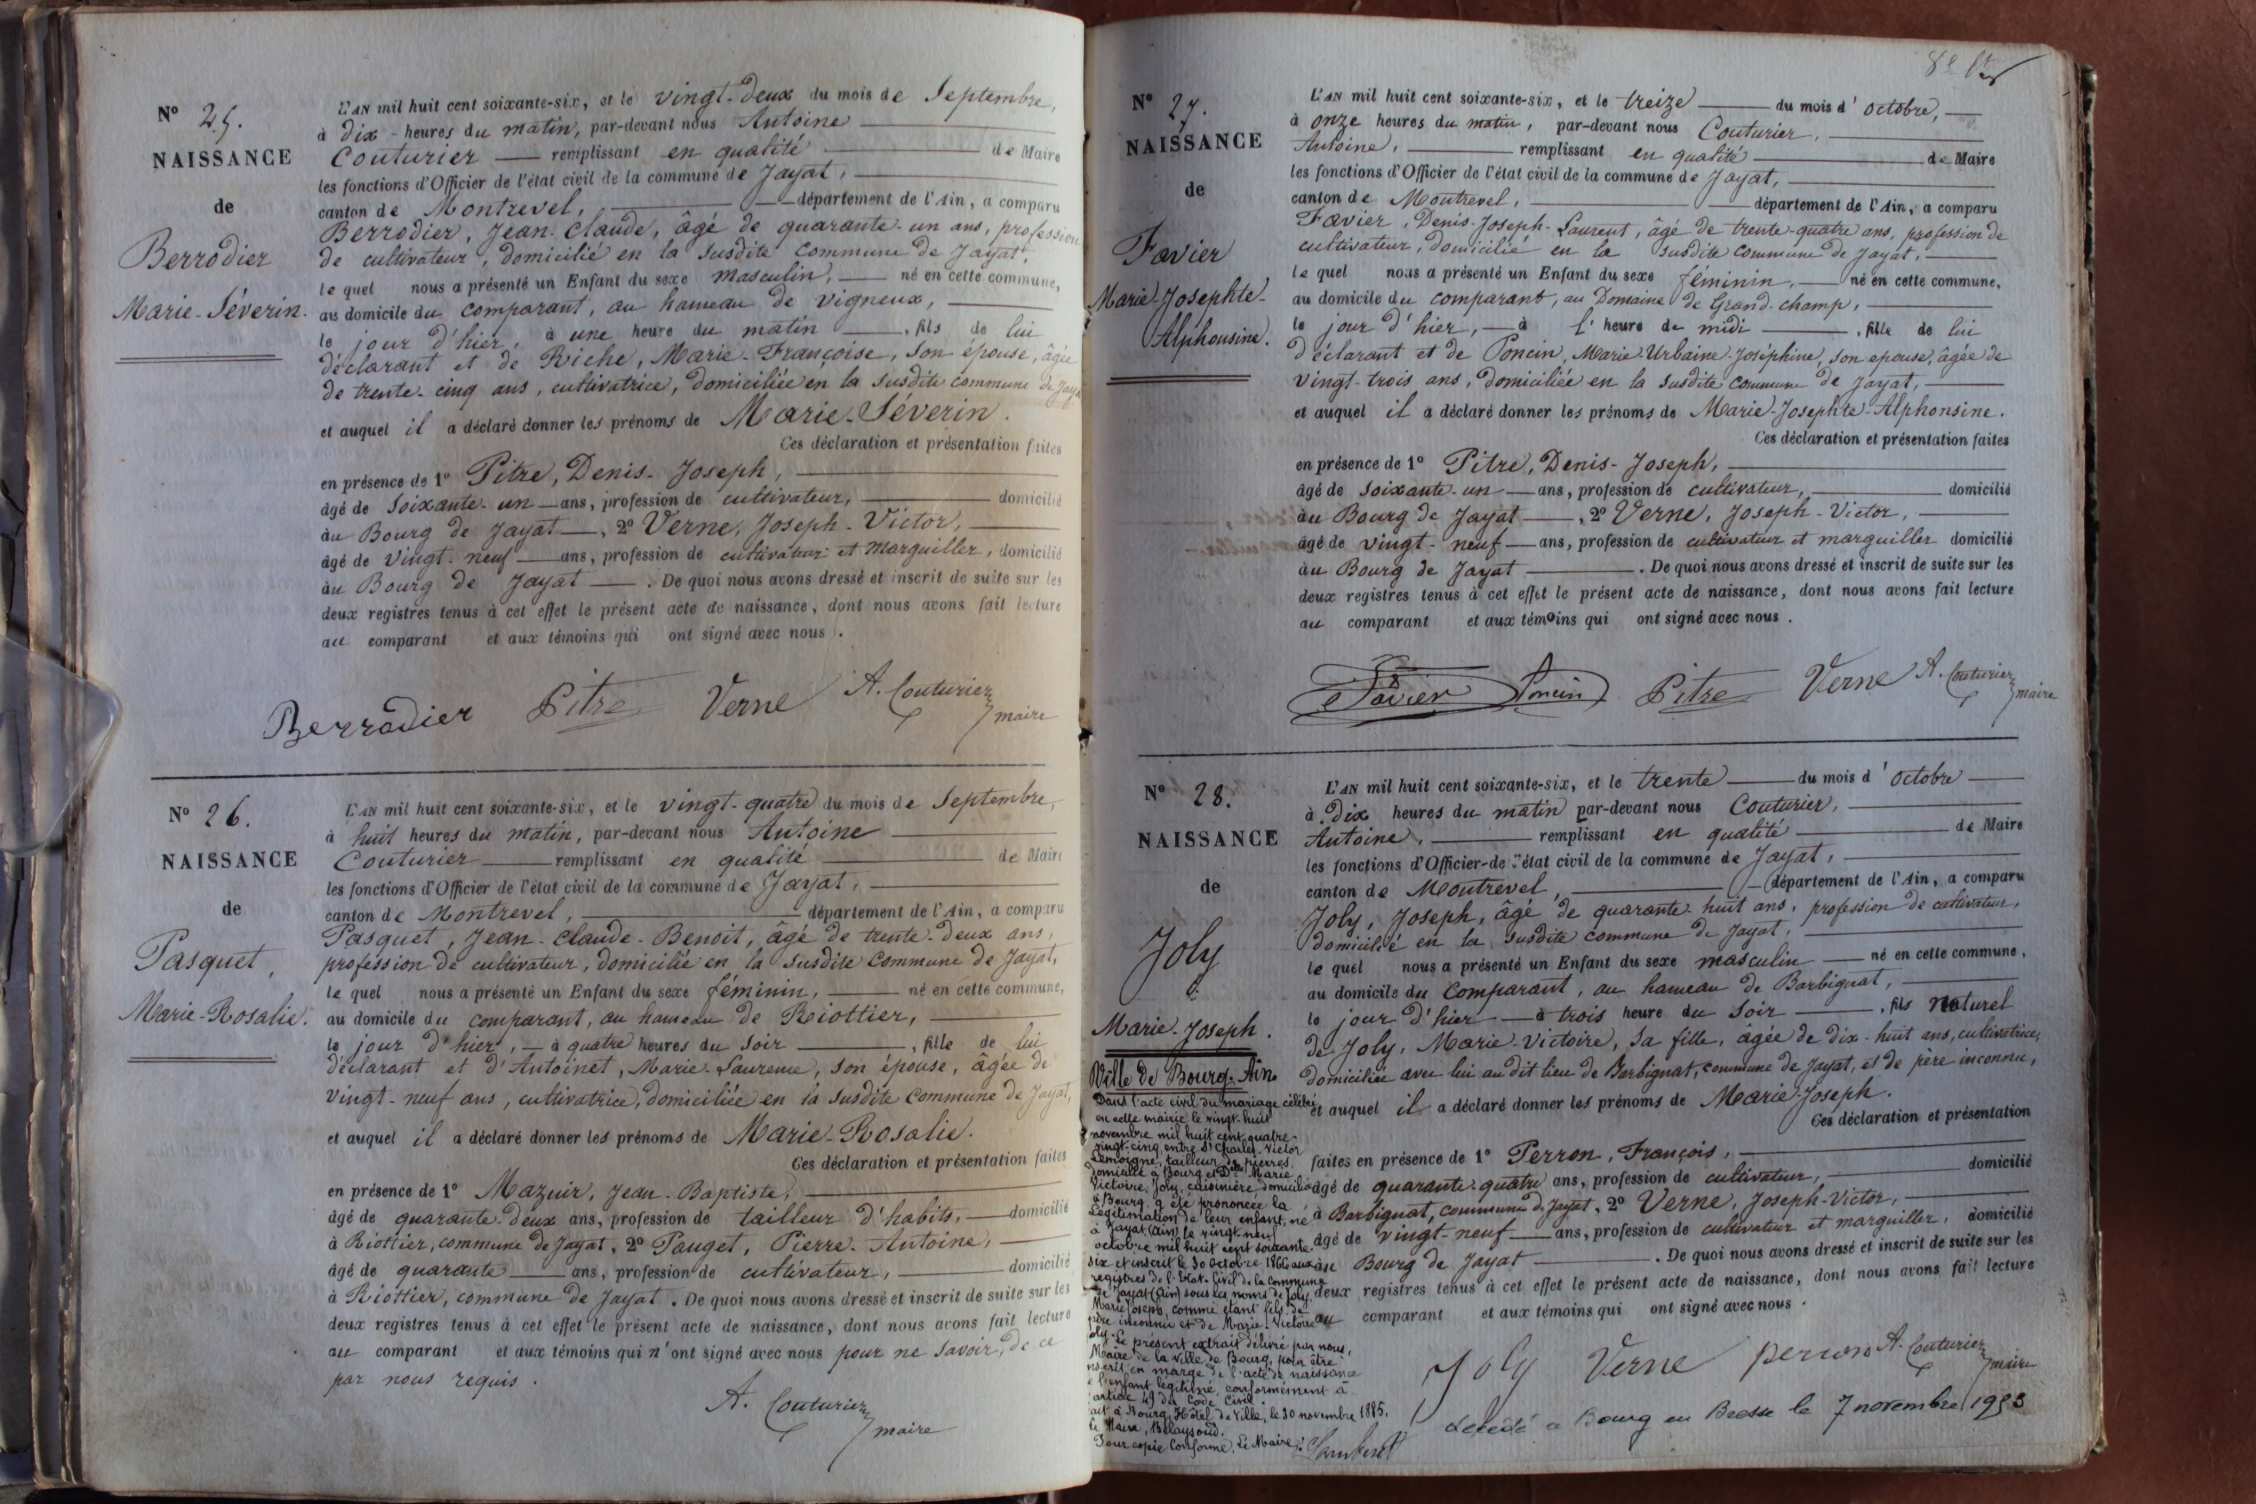 N° 25.
NAISSANCE
de
Berrodier
Marie-Séverin.
L'AN mil huit cent soixante-six, et le vingt-deux du mois de Septembre,
à dix heures du matin, par-devant nous Antoine
Couturier remplissant en qualité de Maire
les fonctions d'Officier de l'état civil de la commune de Jayat,
canton de Montrevel, département de l'Ain, a comparu
Berrodier, Jean-Claude, âgé de quarante-un ans, profession
de cultivateur, domicilié en la susdite commune de Jayat,
lequel nous a présenté un Enfant du sexe masculin, né en cette commune,
au domicile du comparant, au hameau de Vigneux,
le jour d'hier, à une heure du matin, fils de lui
déclarant et de Riche, Marie-Françoise, son épouse, âgée
de trente-cinq ans, cultivatrice, domiciliée en la susdite commune de Jayat
et auquel il a déclaré donner les prénoms de Marie-Séverin.
Ces déclaration et présentation faites
en présence de 1° Pitre, Denis-Joseph,
âgé de soixante-un ans, profession de cultivateur, domicilié
au Bourg de Jayat, 2° Verne, Joseph-Victor,
âgé de vingt-neuf ans, profession de cultivateur et marguiller, domicilié
au Bourg de Jayat. De quoi nous avons dressé et inscrit de suite sur les
deux registres tenus à cet effet le présent acte de naissance, dont nous avons fait lecture
au comparant et aux témoins qui ont signé avec nous.
Berrodier Pitre Verne A. Couturier
maire
N° 26.
NAISSANCE
de
Pasquet,
Marie-Rosalie.
L'AN mil huit cent soixante-six, et le vingt-quatre du mois de Septembre,
à huit heures du matin, par-devant nous Antoine
Couturier remplissant en qualité de Maire
les fonctions d'Officier de l'état civil de la commune de Jayat,
canton de Montrevel, département de l'Ain, a comparu
Pasquet, Jean-Claude-Benoit, âgé de trente-deux ans,
profession de cultivateur, domicilié en la susdite commune de Jayat,
lequel nous a présenté un Enfant du sexe féminin, né en cette commune,
au domicile du comparant, au hameau de Riottier,
le jour d'hier, à quatre heures du soir, fille de lui
déclarant et d'Antoinet, Marie-Laurence, son épouse, âgée de
vingt-neuf ans, cultivatrice, domiciliée en la susdite commune de Jayat,
et auquel il a déclaré donner les prénoms de Marie-Rosalie.
Ces déclaration et présentation faites
en présence de 1° Mazuir, Jean-Baptiste,
âgé de quarante-deux ans, profession de tailleur d'habits, domicilié
à Riottier, commune de Jayat, 2° Pauget, Pierre-Antoine,
âgé de quarante ans, profession de cultivateur, domicilié
à Riottier, commune de Jayat. De quoi nous avons dressé et inscrit de suite sur les
deux registres tenus à cet effet le présent acte de naissance, dont nous avons fait lecture
au comparant et aux témoins qui n'ont signé avec nous pour ne savoir, de ce
par nous requis.
A. Couturier
maire
N° 27.
NAISSANCE
de
Favier
Marie-Josephte-
Alphonsine.
L'AN mil huit cent soixante-six, et le treize du mois d'octobre,
à onze heures du matin, par-devant nous Couturier,
Antoine, remplissant en qualité de Maire
les fonctions d'Officier de l'état civil de la commune de Jayat,
canton de Montrevel, département de l'Ain, a comparu
Favier, Denis-Joseph-Laurent, âgé de trente-quatre ans, profession de
cultivateur, domicilié en la susdite commune de Jayat,
lequel nous a présenté un Enfant du sexe féminin, né en cette commune,
au domicile du comparant, au Domaine de Grand-champ,
le jour d'hier, à l'heure de midi, fille de lui
déclarant et de Poncin, Marie-Urbaine-Joséphine, son épouse, âgée de
vingt-trois ans, domiciliée en la susdite commune de Jayat,
et auquel il a déclaré donner les prénoms de Marie-Josephte-Alphonsine.
Ces déclaration et présentation faites
en présence de 1° Pitre, Denis-Joseph,
âgé de soixante-un ans, profession de cultivateur, domicilié
au Bourg de Jayat, 2° Verne, Joseph-Victor,
âgé de vingt-neuf ans, profession de cultivateur et marguiller domicilié
au Bourg de Jayat. De quoi nous avons dressé et inscrit de suite sur les
deux registres tenus à cet effet le présent acte de naissance, dont nous avons fait lecture
au comparant et aux témoins qui ont signé avec nous.
Favier Poncin Pitre Verne A. Couturier
maire
N° 28.
NAISSANCE
de
Joly
Marie-Joseph.
L'AN mil huit cent soixante-six, et le trente du mois d'octobre
à dix heures du matin par-devant nous Couturier,
Antoine, remplissant en qualité de Maire
les fonctions d'Officier de l'état civil de la commune de Jayat,
canton de Montrevel, département de l'Ain, a comparu
Joly, Joseph, âgé de quarante-huit ans, profession de cultivateur,
domicilié en la susdite commune de Jayat,
lequel nous a présenté un Enfant du sexe masculin né en cette commune,
au domicile du comparant, au hameau de Barbignat,
le jour d'hier à trois heure du soir, fils naturel
de Joly, Marie-Victoire, sa fille, âgée de dix-huit ans, cultivatrice,
domiciliée avec lui au dit lieu de Barbignat, commune de Jayat, et de père inconnu,
et auquel il a déclaré donner les prénoms de Marie-Joseph.
Ces déclaration et présentation
faites en présence de 1° Perron, François,
âgé de quarante-quatre ans, profession de cultivateur, domicilié
à Barbignat, commune de Jayat, 2° Verne, Joseph-Victor,
âgé de vingt-neuf ans, profession de cultivateur et marguiller, domicilié
au Bourg de Jayat. De quoi nous avons dressé et inscrit de suite sur les
deux registres tenus à cet effet le présent acte de naissance, dont nous avons fait lecture
au comparant et aux témoins qui ont signé avec nous.
Joly Verne perron A. Couturier
maire
décédé a Bourg en Bresse le 7 novembre 1953
Ville de Bourg. Ain
Dans l'acte civil du mariage célébré
en cette mairie le vingt-huit
novembre mil huit cent quatre-
vingt-cinq entre Sr Charles Victor
Lemoigne, tailleur de pierres,
domicilié à Bourg et Dlle Marie
Victoire Joly, cuisinière, domiciliée
à Bourg, a été prononcée la
légitimation de leur enfant, né
à Jayat (Ain) le vingt-neuf
octobre mil huit cent soixante-
six et inscrit le 30 octobre 1866 aux
registres de l'Etat-Civil de la commune
de Jayat (Ain) sous les noms de Joly
Marie Joseph, comme étant fils de
père inconnu et de Marie-Victoire
Joly. Le présent extrait délivré par nous,
Maire de la ville de Bourg, pour être
inscrit en marge de l'acte de naissance
de l'enfant légitimé, conformément à
l'article 49 du Code Civil.
Fait à Bourg, Hôtel de Ville, le 30 novembre 1885.
Le Maire,
Pour copie Conforme, Le Maire: